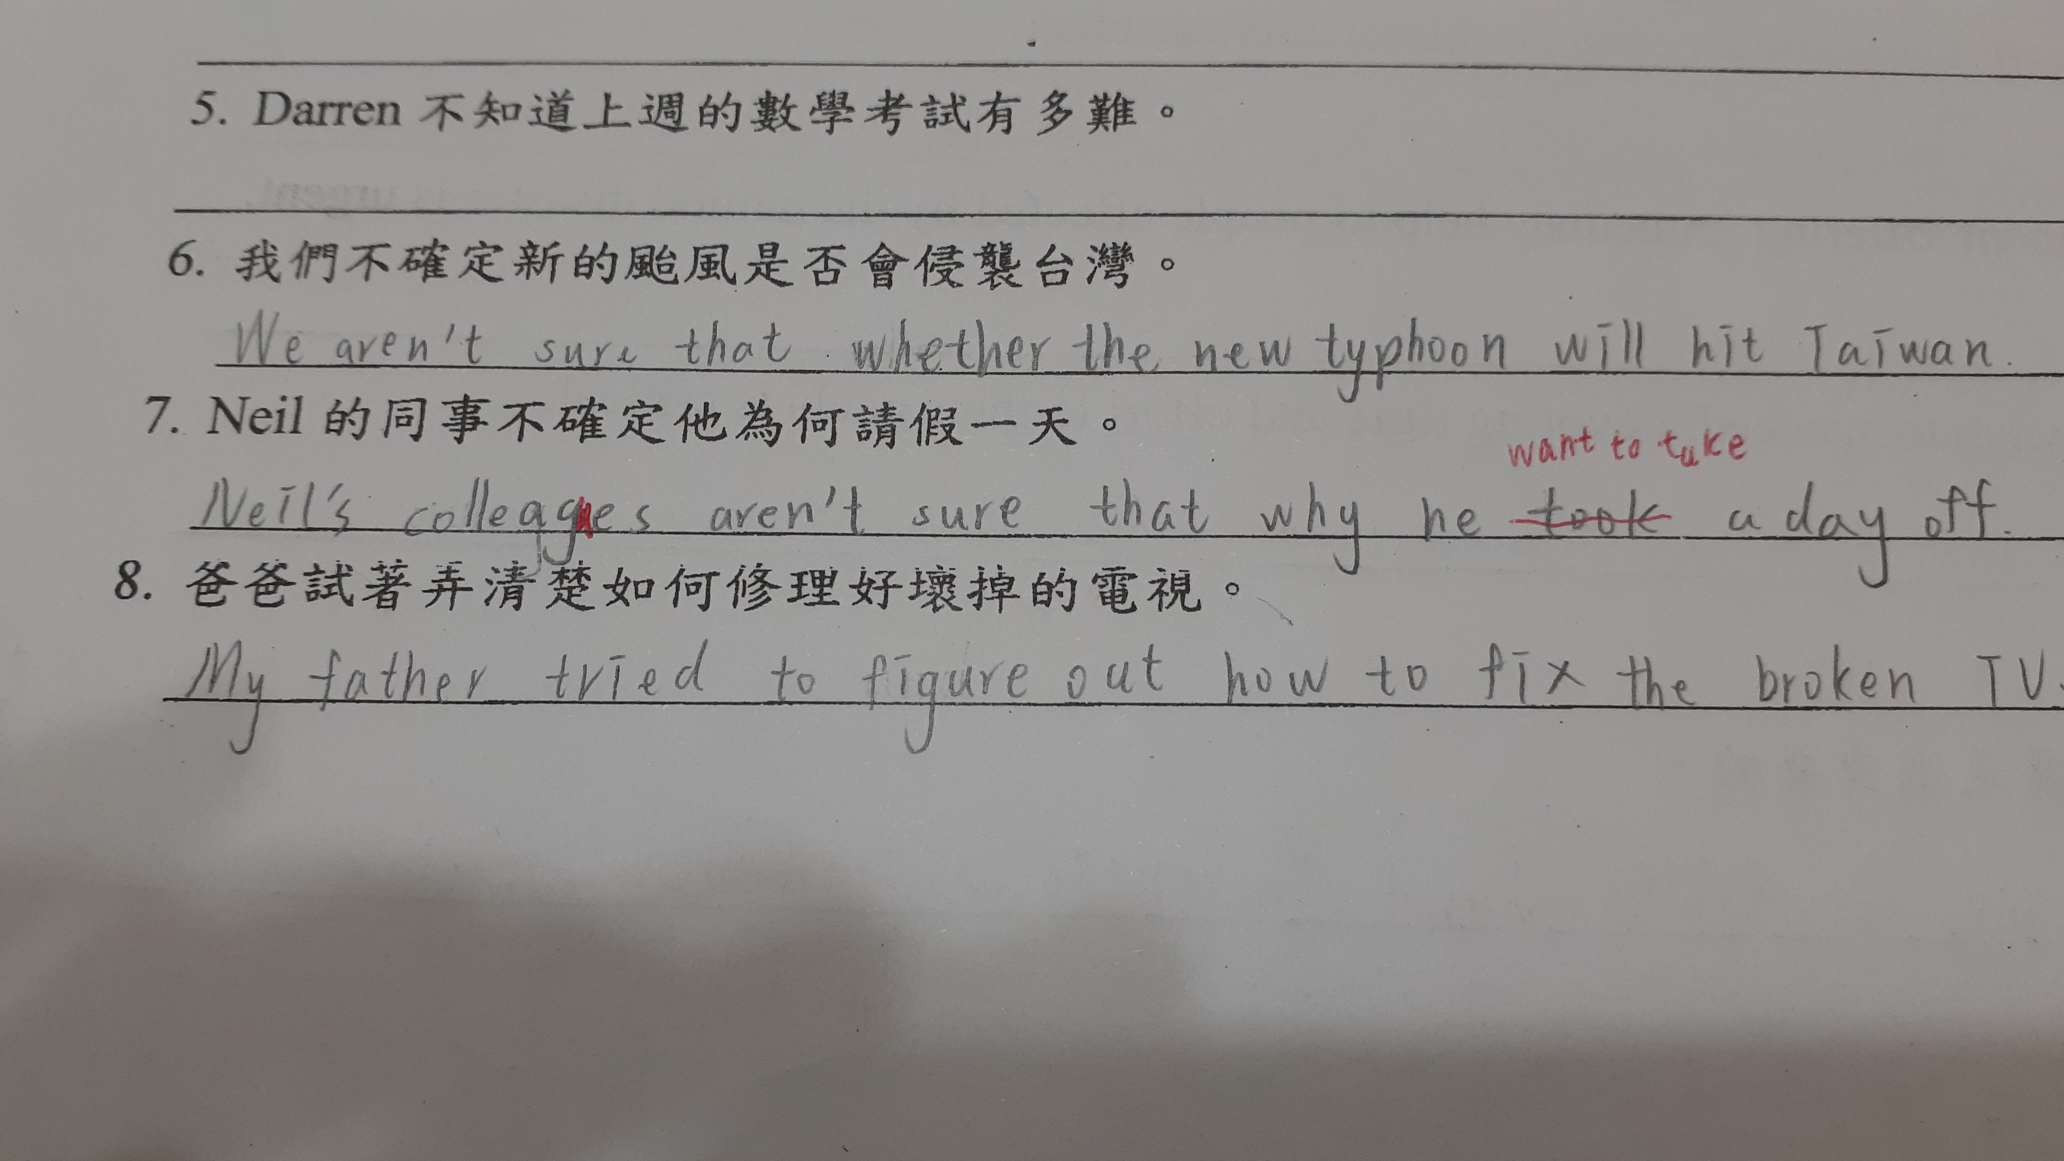 5. Darren 不知道上週的數學考試有多難。
6. 我們不確定新的颱風是否會侵襲台灣。
We aren't sure that whether the new typhoon will hit Taiwan.
7. Neil 的同事不確定他為何請假一天。
want to take
Neil's colleagues aren't sure that why he took a day off.
8. 爸爸試著弄清楚如何修理好壞掉的電視。
My father tried to figure out how to fix the broken TV.